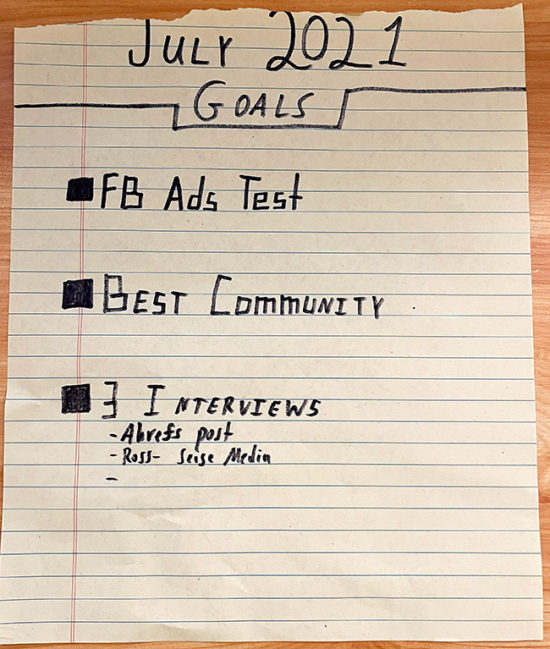 JULY 2021
GOALS
FB Ads Test
BEST COMMUNITY
3 INTERVIEWS
- Ahrefs post
- Ross- Seige Media
-